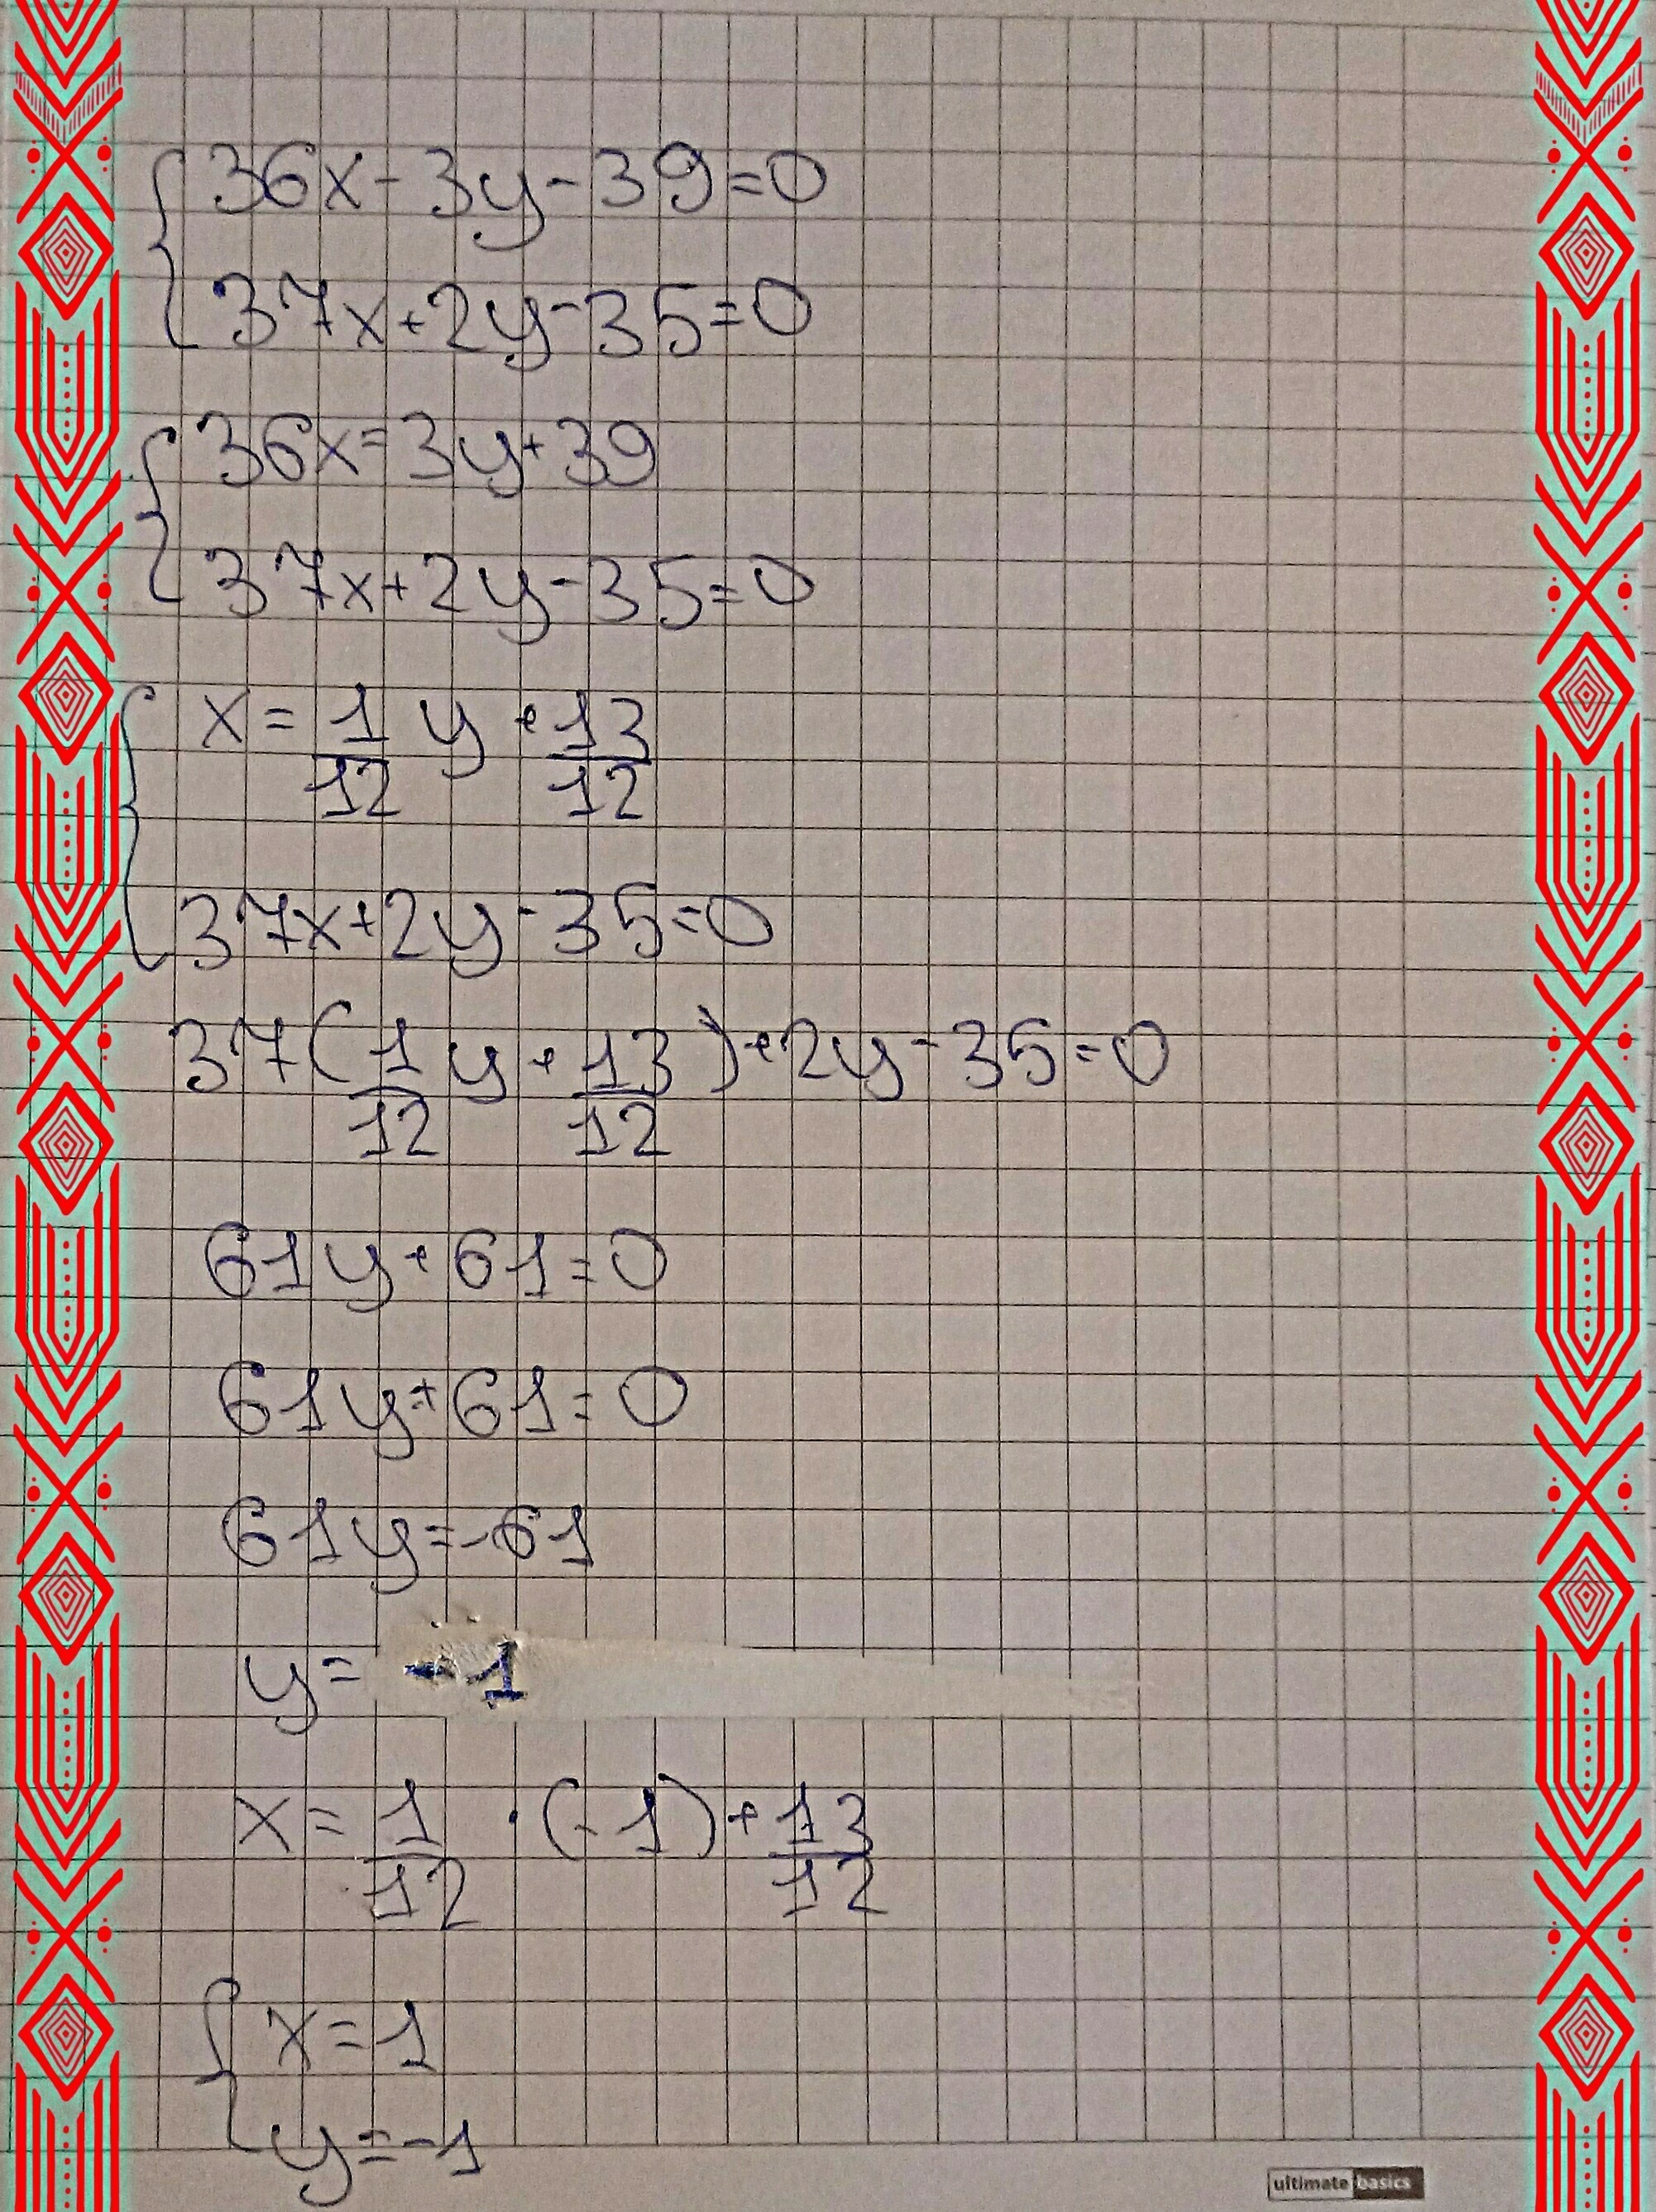 36x-3y-39=0
37x+2y-35=0
36x=3y+39
37x+2y-35=0
x=1/12 y+13/12
37x+2y-35=0
37(1/12 y+13/12)+2y-35=0
61y+61=0
61y+61=0
61y=-61
y=-1
x=1/12·(-1)+13/12
x=1
y=-1
ultimate basics